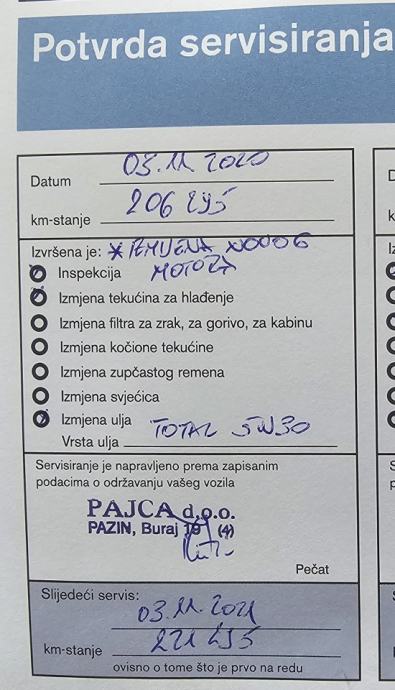 Potvrda servisiranja
Datum 03.11.2020
km-stanje 206 295
Izvršena je: *IZMJENA NOVOG
Inspekcija MOTORA
Izmjena tekućina za hlađenje
Izmjena filtra za zrak, za gorivo, za kabinu
Izmjena kočione tekućine
Izmjena zupčastog remena
Izmjena svjećica
Izmjena ulja
Vrsta ulja TOTAL 5W30
Servisiranje je napravljeno prema zapisanim
podacima o održavanju vašeg vozila
PAJCA d.o.o.
PAZIN, Buraj 19 (4)
Pečat
Slijedeći servis:
03.11.2021
km-stanje 221 295
ovisno o tome što je prvo na redu